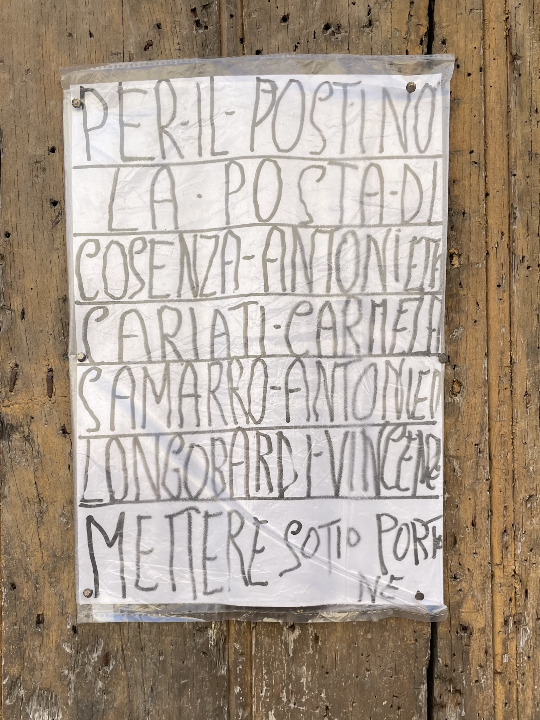 PER-IL-POSTINO
LA-POSTA-DI
COSENZA-ANTONIETTA
CARIATI-CARMELA
SAMARRO-ANTONIO
LONGOBARDI-VINCENZO
METTERE SOTTO PORTO
NE